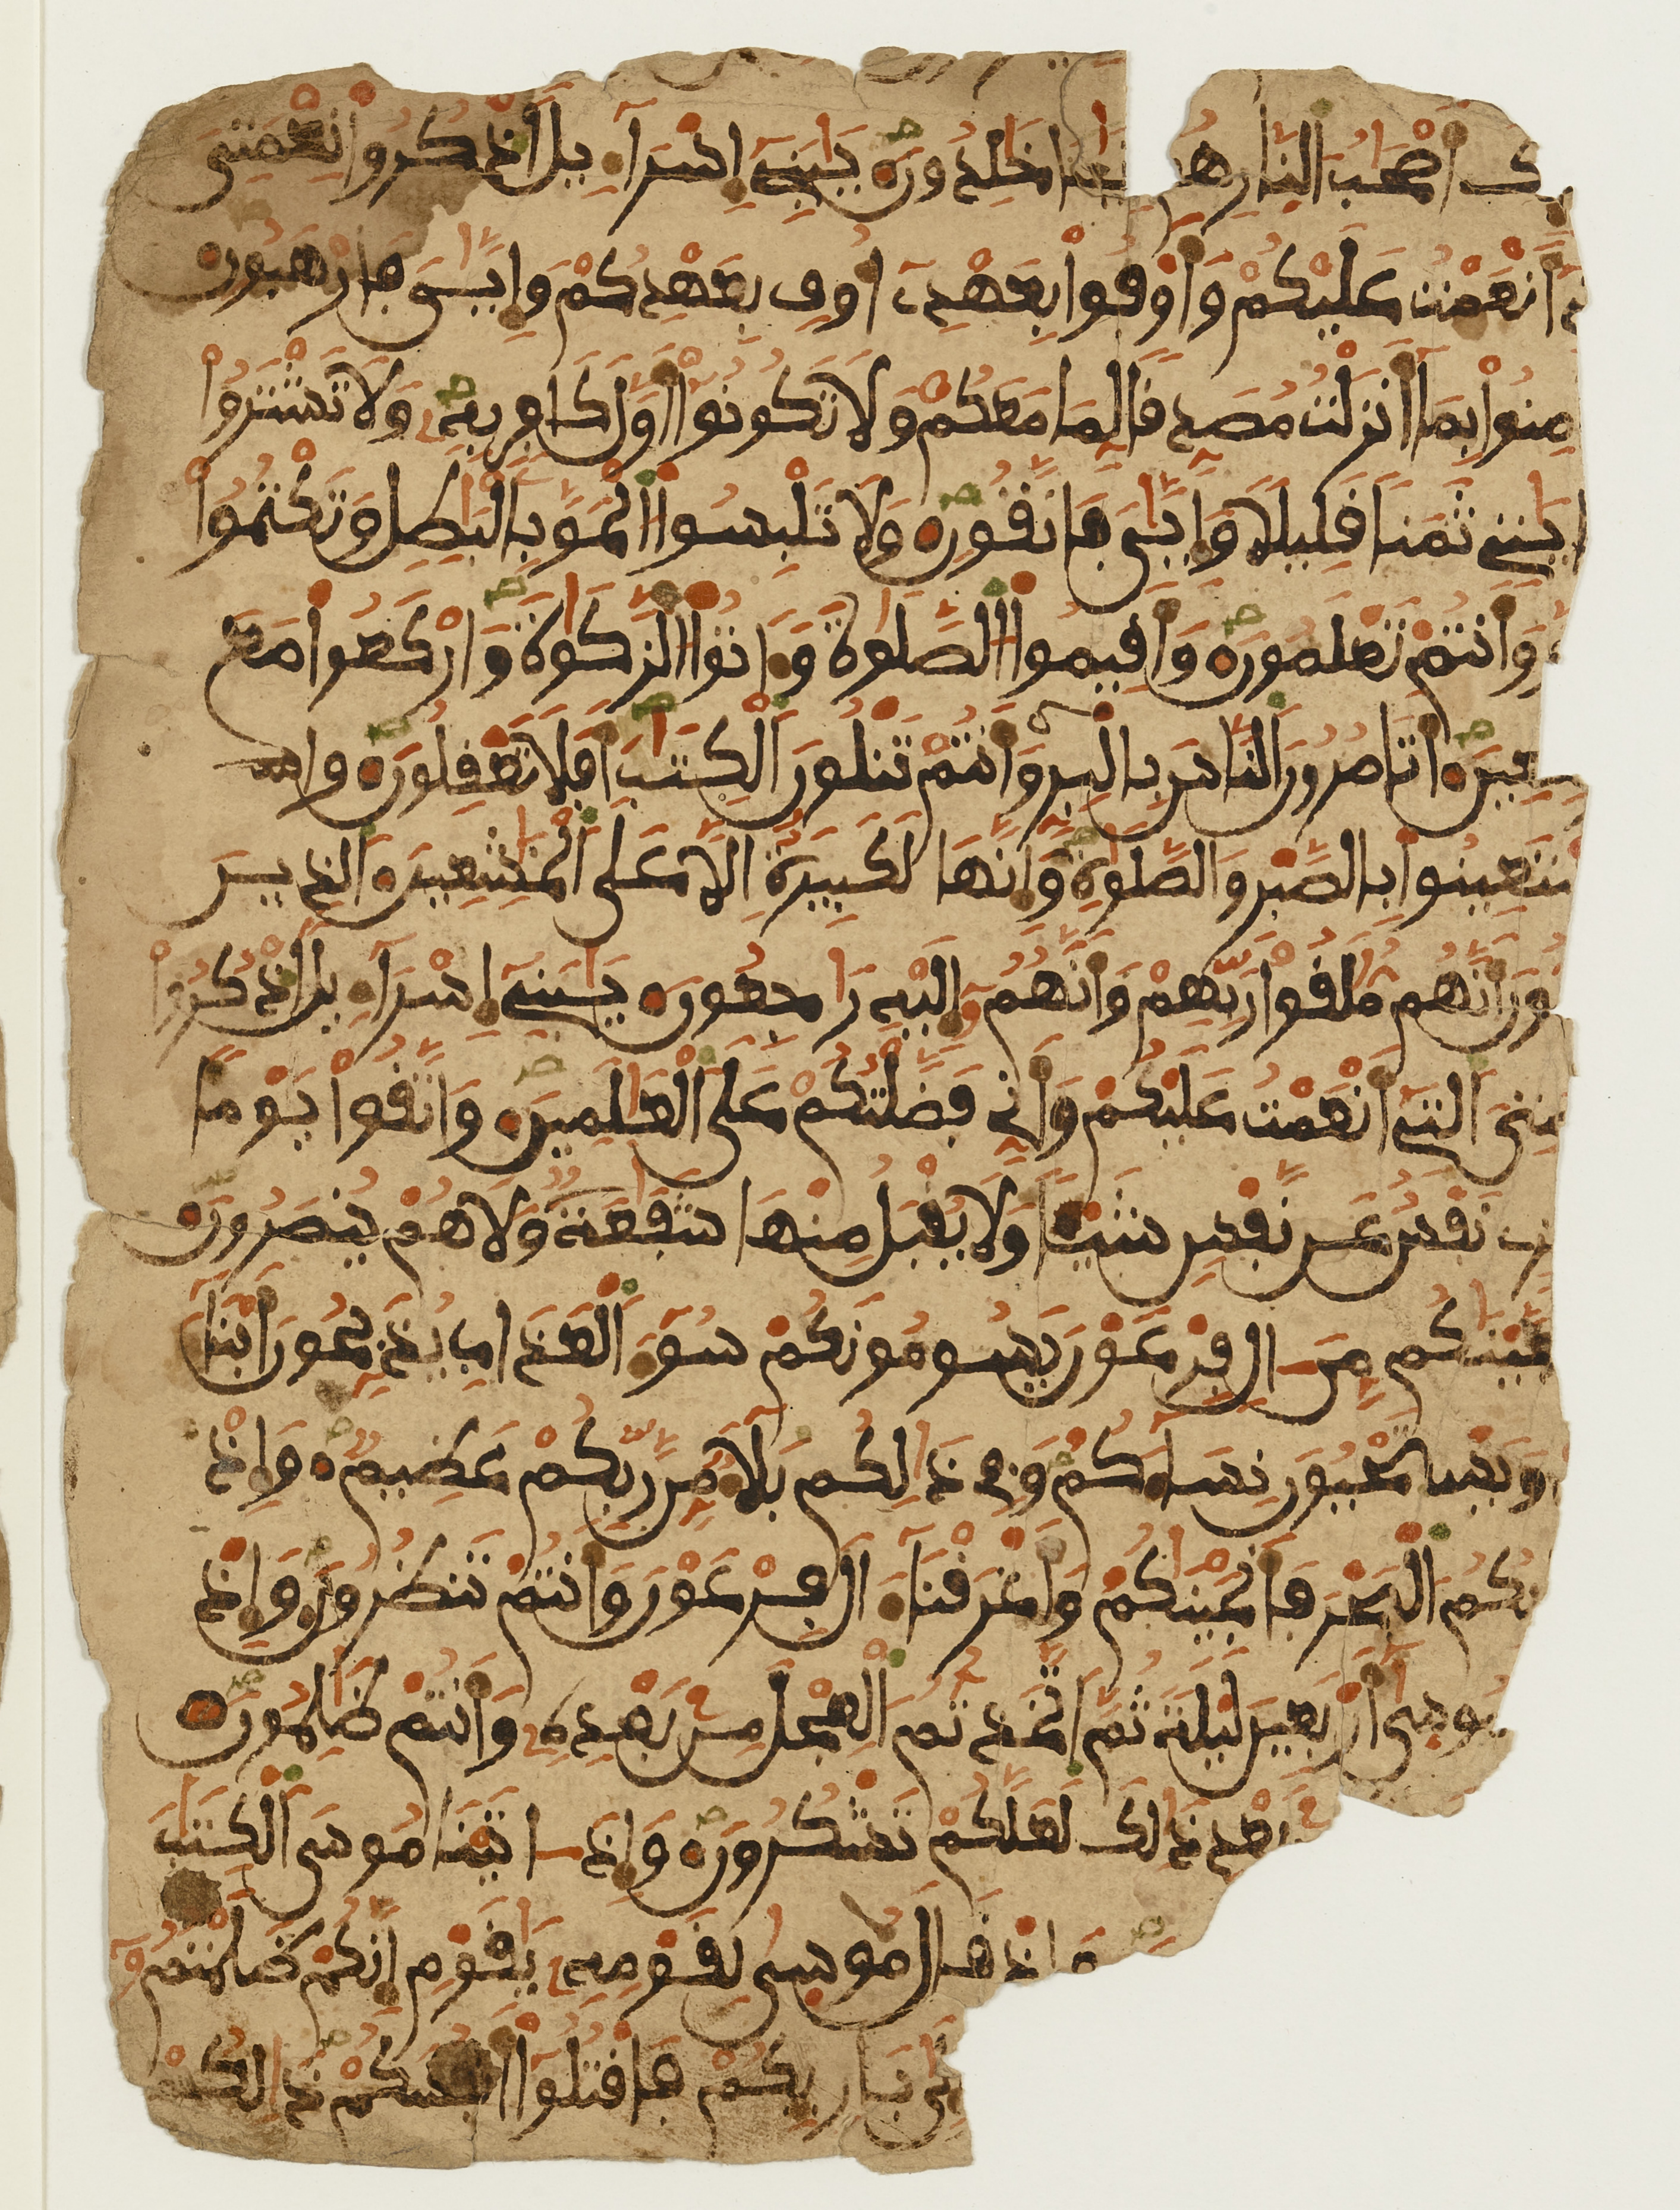 ك اصحب النار هم فيها خلدون يبني اسراءيل اذكروا نعمتي
انعمت عليكم واوفوا بعهدي اوف بعهدكم وايي فارهبون
منوا بما انزلت مصدقا لما معكم ولا تكونوا اول كافر به ولا تشتروا
ايتي ثمنا قليلا وايي فاتقون ولا تلبسوا الحق بالبطل وتكتموا
وانتم تعلمون واقيموا الصلوة وءاتوا الزكوة واركعوا مع
كعين اتامرون الناس بالبر وانتم تتلون الكتب افلا تعقلون واس
ستعينوا بالصبر والصلوة وانها لكبيرة الا على الخشعين الذين
ون انهم ملقوا ربهم وانهم اليه راجعون يبني اسراءيل اذكروا
متي التي انعمت عليكم واني فضلتكم على العلمين واتقوا يوما
نفس عن نفس شيئا ولا يقبل منها شفعة ولا هم ينصرون
نجينكم من ءال فرعون يسومونكم سوء العذاب يذبحون ابنا
ويستحيون نساءكم وفي ذالكم بلاء من ربكم عظيم واذ
بكم البحر فانجينكم واغرقنا ءال فرعون وانتم تنظرون واذ
موسى اربعين ليلة ثم اتخذتم العجل من بعده وانتم ظلمون
بعد ذالك لعلكم تشكرون واذ ءاتينا موسى الكتب
واذ قال موسى لقومه يقوم انكم ظلمتم
الى باريكم فاقتلوا انفسكم ذالكم